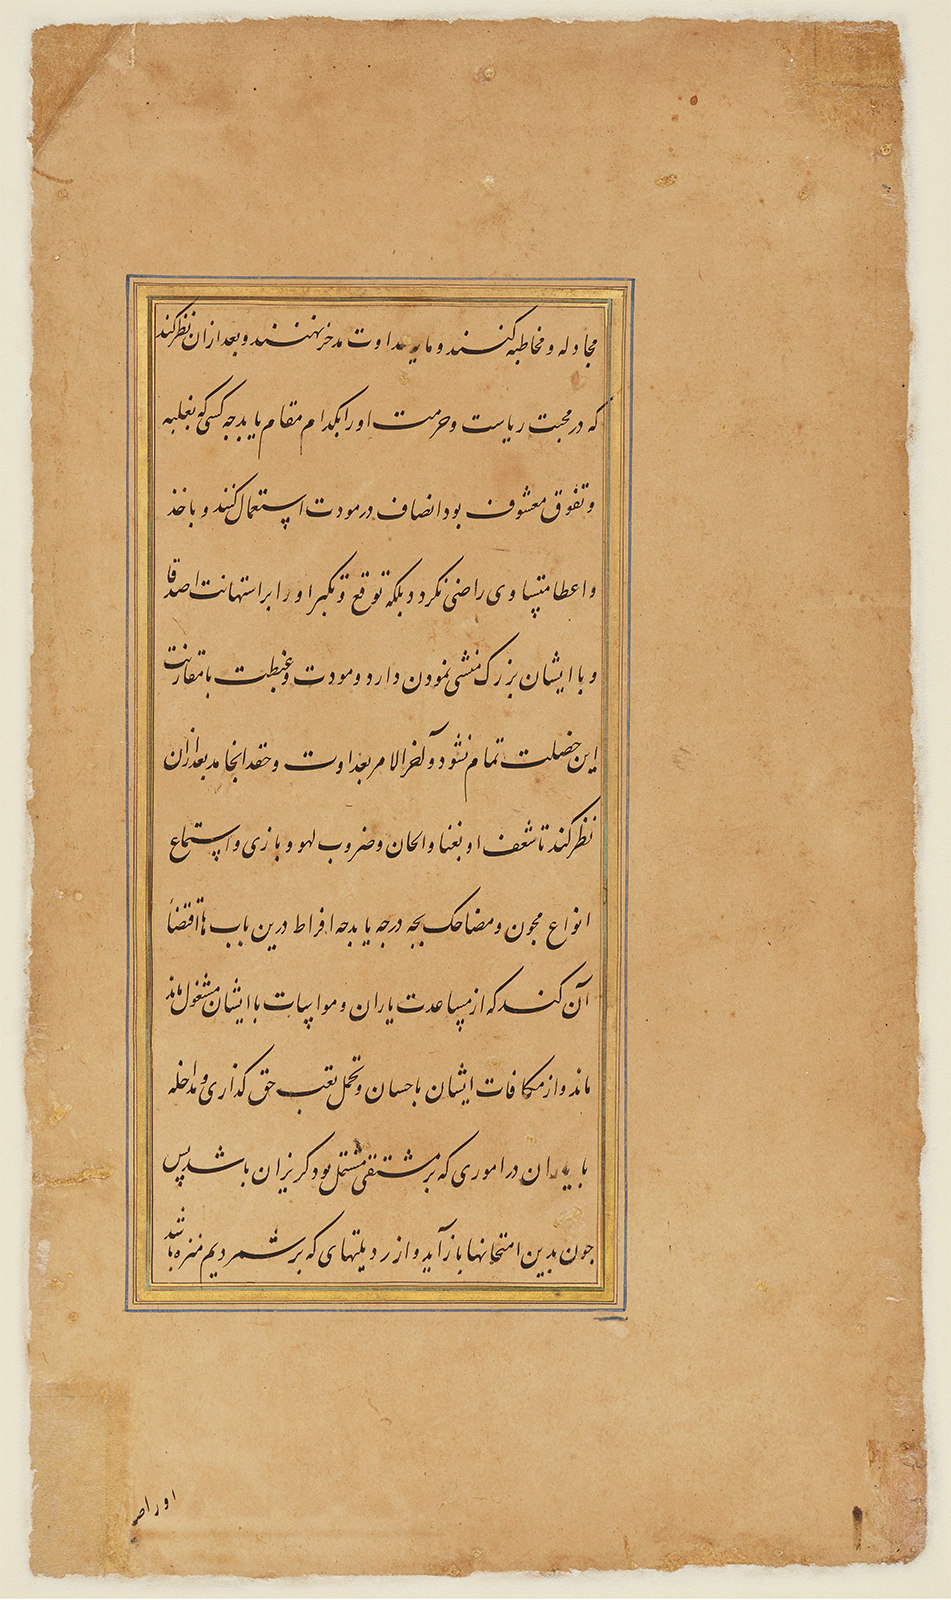 مجاوله و مخاطبه کنند و مایه عداوت مدخر نهند و بعد ازان نظر کند
که در محبت ریاست و حرمت او را بکدام مقام یابد چه کسی که بغلبه
و تفوق معشوف بود انصاف در مودت استعمال نکند و باخذ
و اعطا متساوی راضی نکردد بلکه توقع و تکبر او را بر استهانت اصدقا
و با ایشان بزرک منشی نمودن دارد و مودت و غبطت با مقارنت
این خصلت تمام نشود و آخر الامر بعداوت و حقد انجامد بعد ازان
نظر کند تا شعف او بغنا و الحان و ضروب لهو و بازی و استماع
انواع مجون و مضاحک بچه درجه یابد چه افراط درین باب اقتضأ
آن کند که از مساعدت یاران و مواسات با ایشان مشغول ماند
ماند و از مکافات ایشان باحسان و تحمل تعب حق کذاری و مداخله
با یاران در اموری که بر مشقتی مشتمل بود کریزان باشد پس
جون بدین امتحانها باز آید و از ردیلتهای که برشمردیم منزه باشد
او را